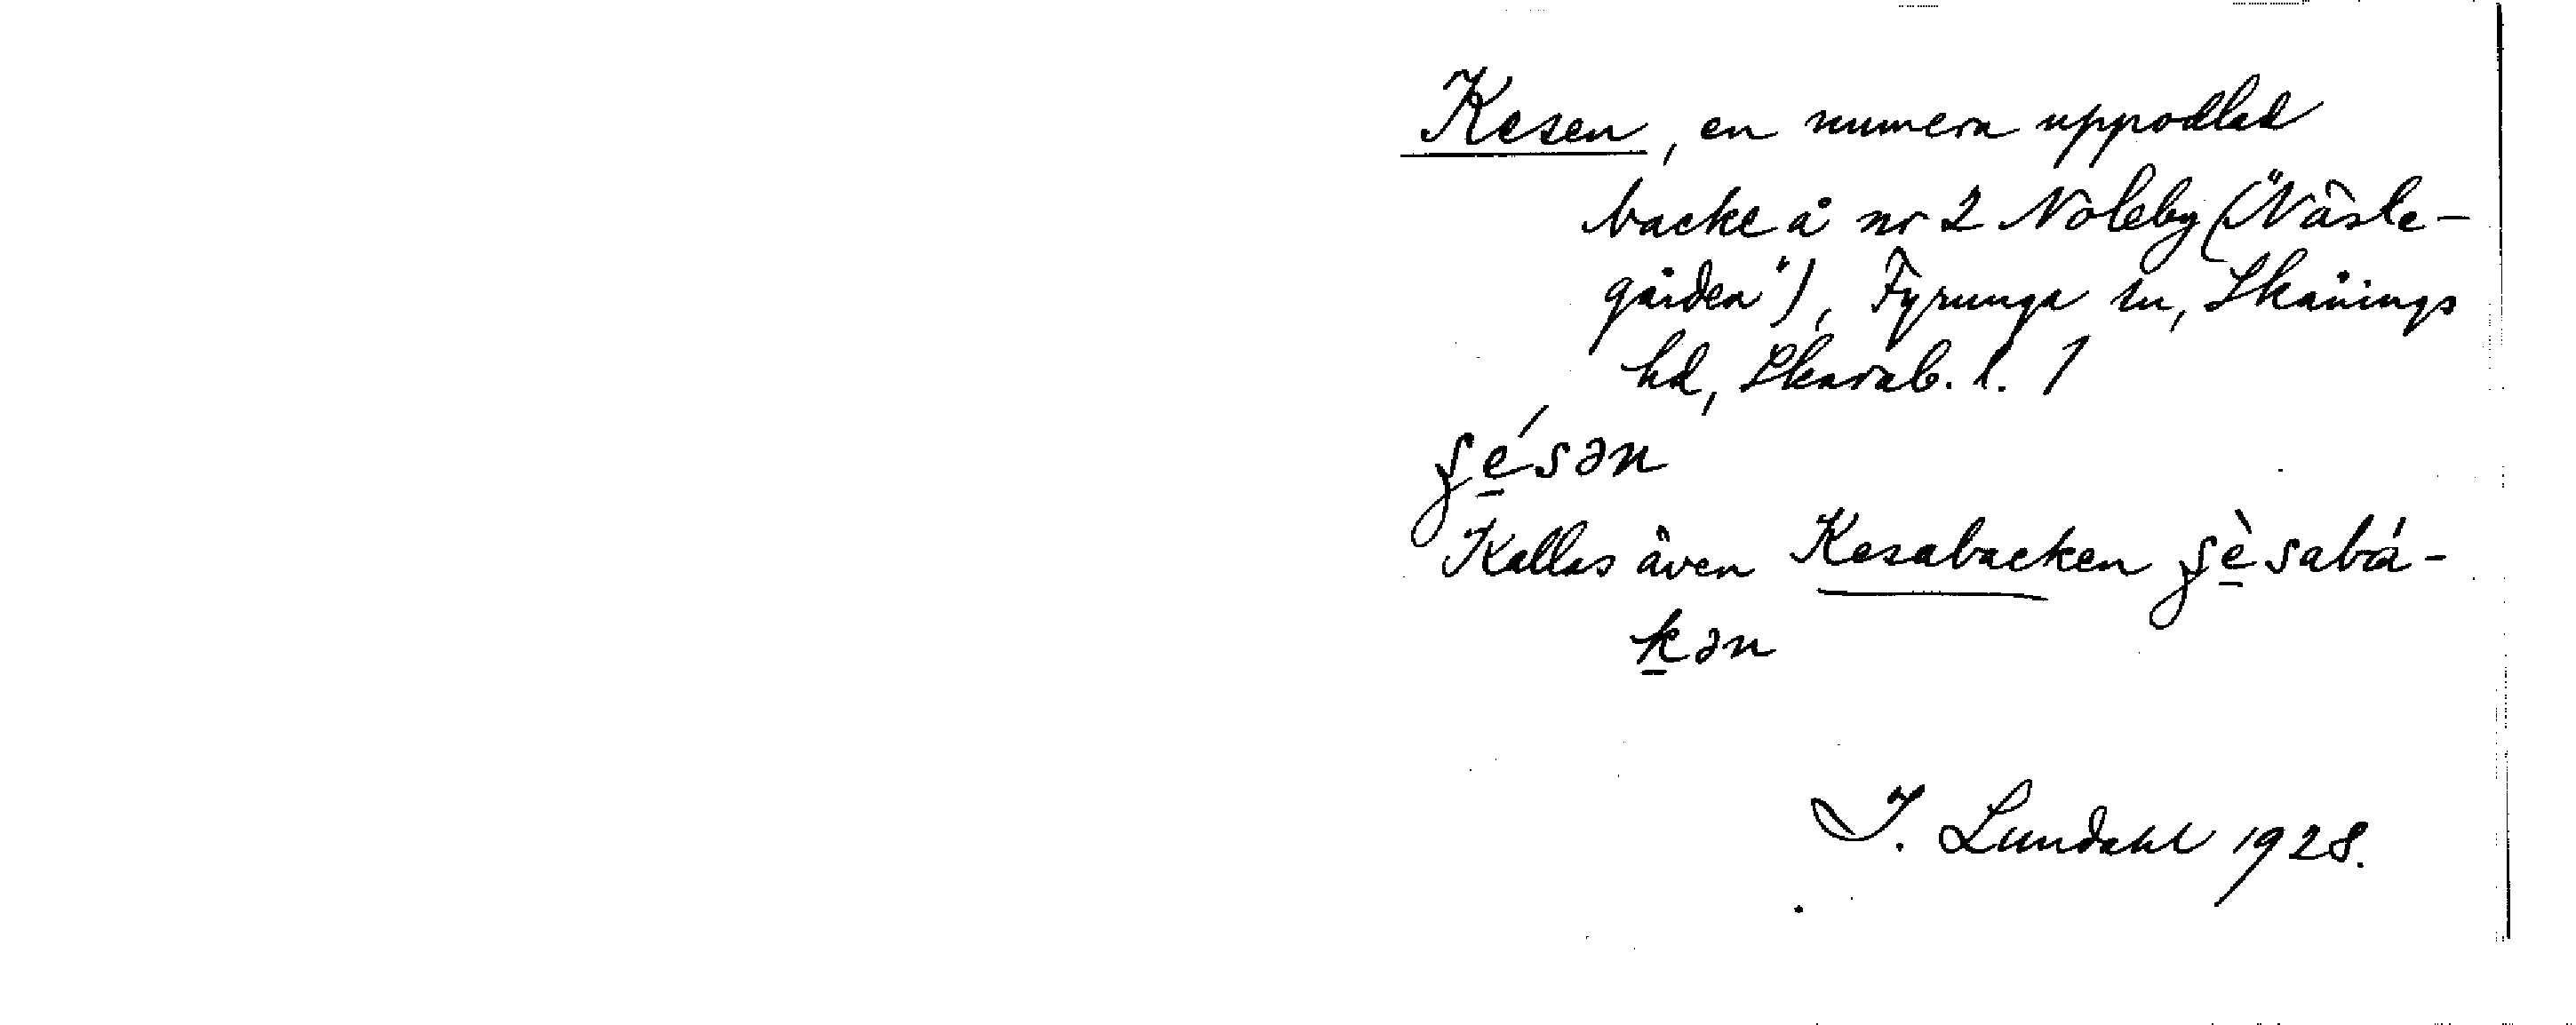 Kesen, en numera uppodlad
backe å nr 2 Noleby ("Väste-
gården"), Fyrunga sn, Skånings
hd, Skarab. l. 1
ʂé̲sən
Kallas även Kesabacken ʂè̲sabá-
k̲ən
I. Lundahl 1928.